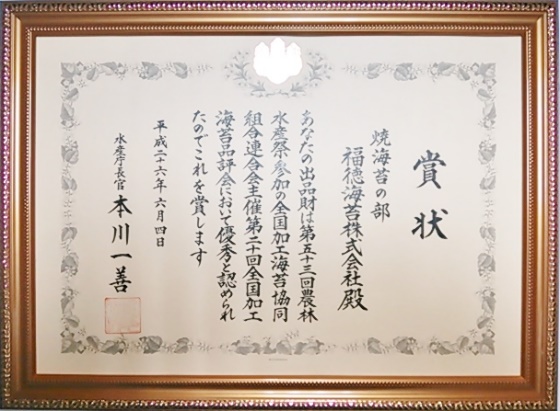 賞状
焼海苔の部
福徳海苔株式会社殿
あなたの出品財は第五十三回農林
水産祭参加の全国加工海苔協同
組合連合会主催第二十回全国加工
海苔品評会において優秀と認められ
たのでこれを賞します
平成二十六年六月四日
水産庁長官 本川一善